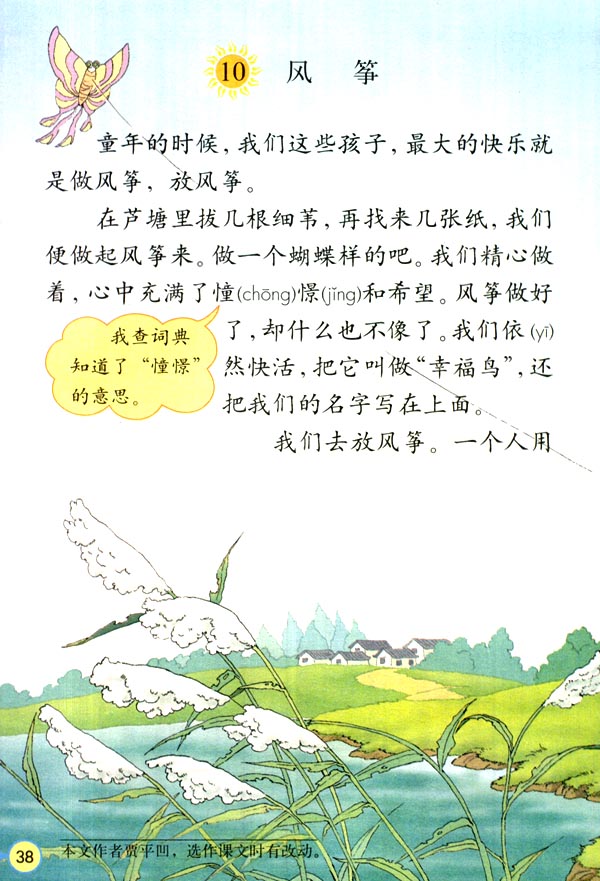 10 风 筝
童年的时候，我们这些孩子，最大的快乐就
是做风筝，放风筝。
在芦塘里拔几根细苇，再找来几张纸，我们
便做起风筝来。做一个蝴蝶样的吧。我们精心做
着，心中充满了憧(chōng)憬(jǐng)和希望。风筝做好
了，却什么也不像了。我们依(yī)
然快活，把它叫做“幸福鸟”，还
把我们的名字写在上面。
我查词典
知道了“憧憬”
的意思。
我们去放风筝。一个人用
本文作者贾平凹，选作课文时有改动。
38